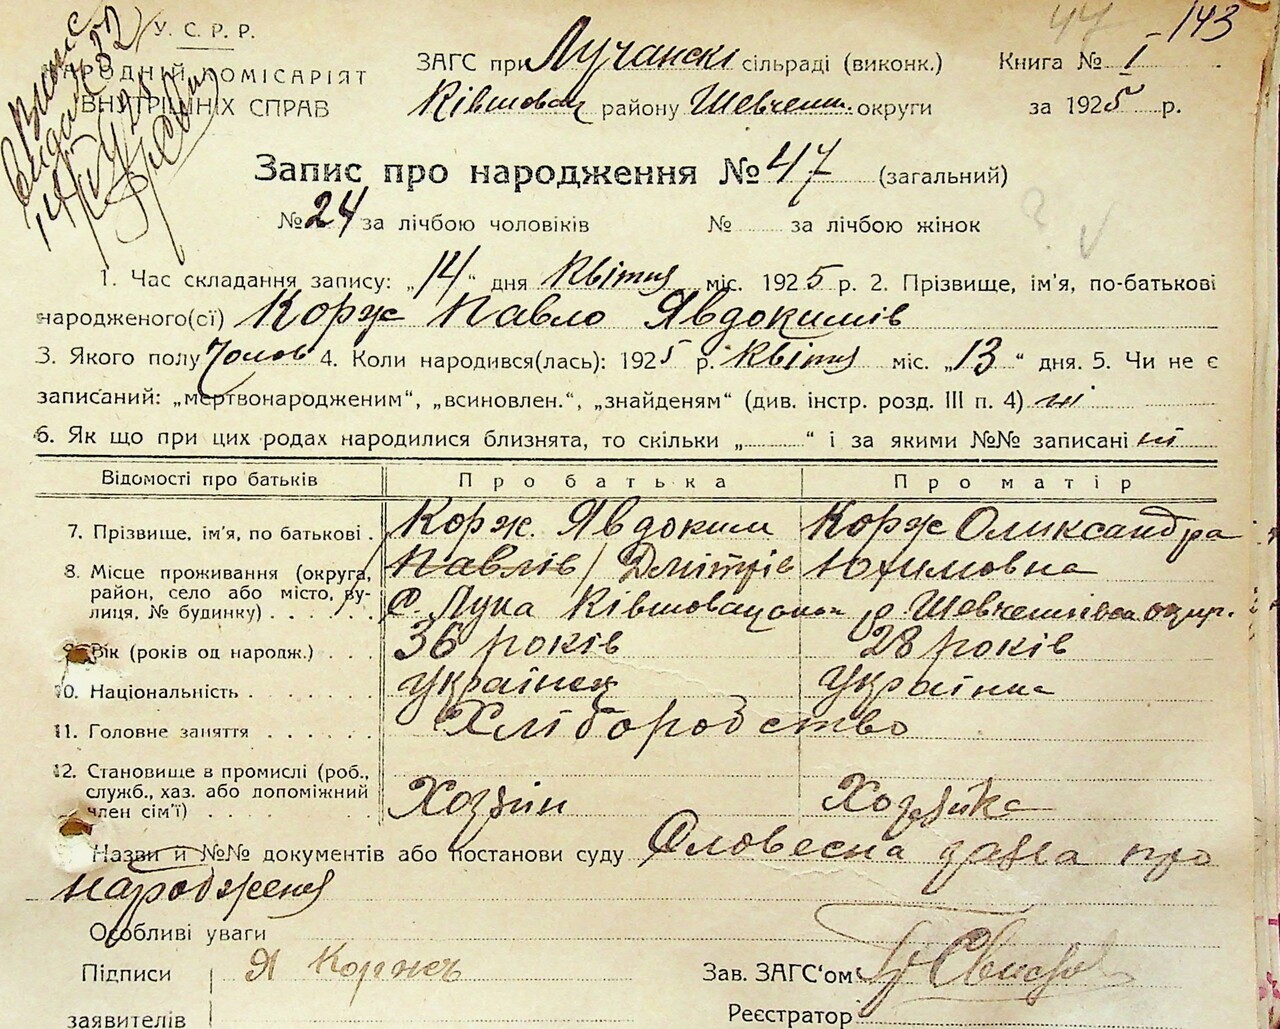 У. С. Р. Р.
НАРОДНІЙ КОМІСАРІЯТ
ВНУТРІШНІХ СПРАВ
44 143
ЗАГС при Лучанскі сільраді (виконк.) Книга № I
Ківшовац району Шевченк. округи за 1925 р.
Запис про народження № 47 (загальний)
№ 24 за лічбою чоловіків № за лічбою жінок
1. Час складання запису: „14“ дня Квітня міс. 1925 р. 2. Прізвище, ім'я, по-батькові
народженого(сї) Корж Павло Явдокимів
3. Якого полу Чолов 4. Коли народився(лась): 1925 р. Квітня міс. „13“ дня. 5. Чи не є
записаний: „мертвонародженим“, „всиновлен.“, „знайденям“ (див. інстр. розд. III п. 4) ні
6. Як що при цих родах народилися близнята, то скільки „ “ і за якими №№ записані ні
Відомості про батьків Про батька Про матір
7. Прізвище, ім'я, по батькові . Корж Явдоким Корж Олександра
Павлів / Дмітрів Юхимовна
8. Місце проживання (округа,
район, село або місто, ву-
лиця, № будинку) . . . . . С. Лука Ківшовацьког р Шевченківска окр.
9. Вік (років од народж.) . . . 36 років 28 років
10. Національність . . . . . . . Українец Українка
11. Головне заняття . . . . . . Хліборобство
12. Становище в промислі (роб.,
служб., хаз. або допоміжний
член сім'ї) . . . . . . . Хозяїн Хозяйка
Назви й №№ документів або постанови суду Словесна заява про
народженя
Особливі уваги
Підписи Я Коржъ Зав. ЗАГС'ом
заявителів Реєстратор